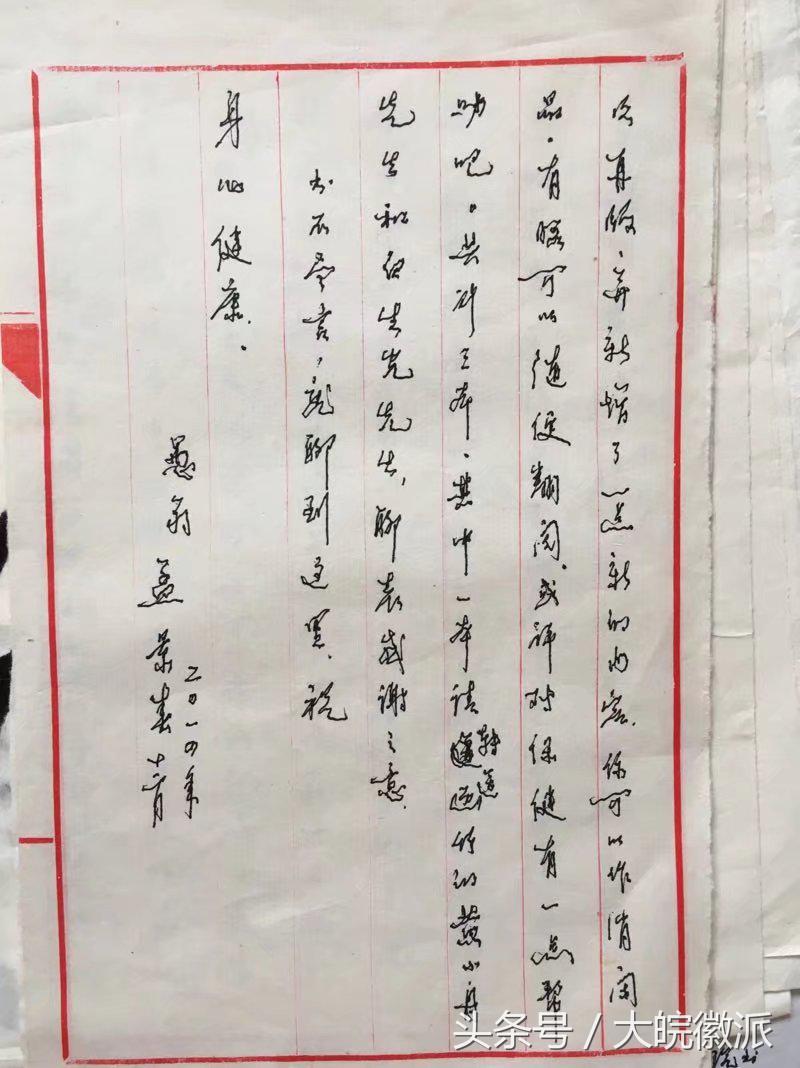 次再版、并新增了一点新的内容。你可以作消闲
品。有暇可以随便翻阅。或许对保健有一点帮
助吧。共计三本、其中一本请转送你的黄小舟
先生和 生光先生，聊表感谢之意。
书不尽言，就聊到这里。祝
身心健康。
愚翁 孟景春 十一月
二〇一四年
头条号／大皖徽派